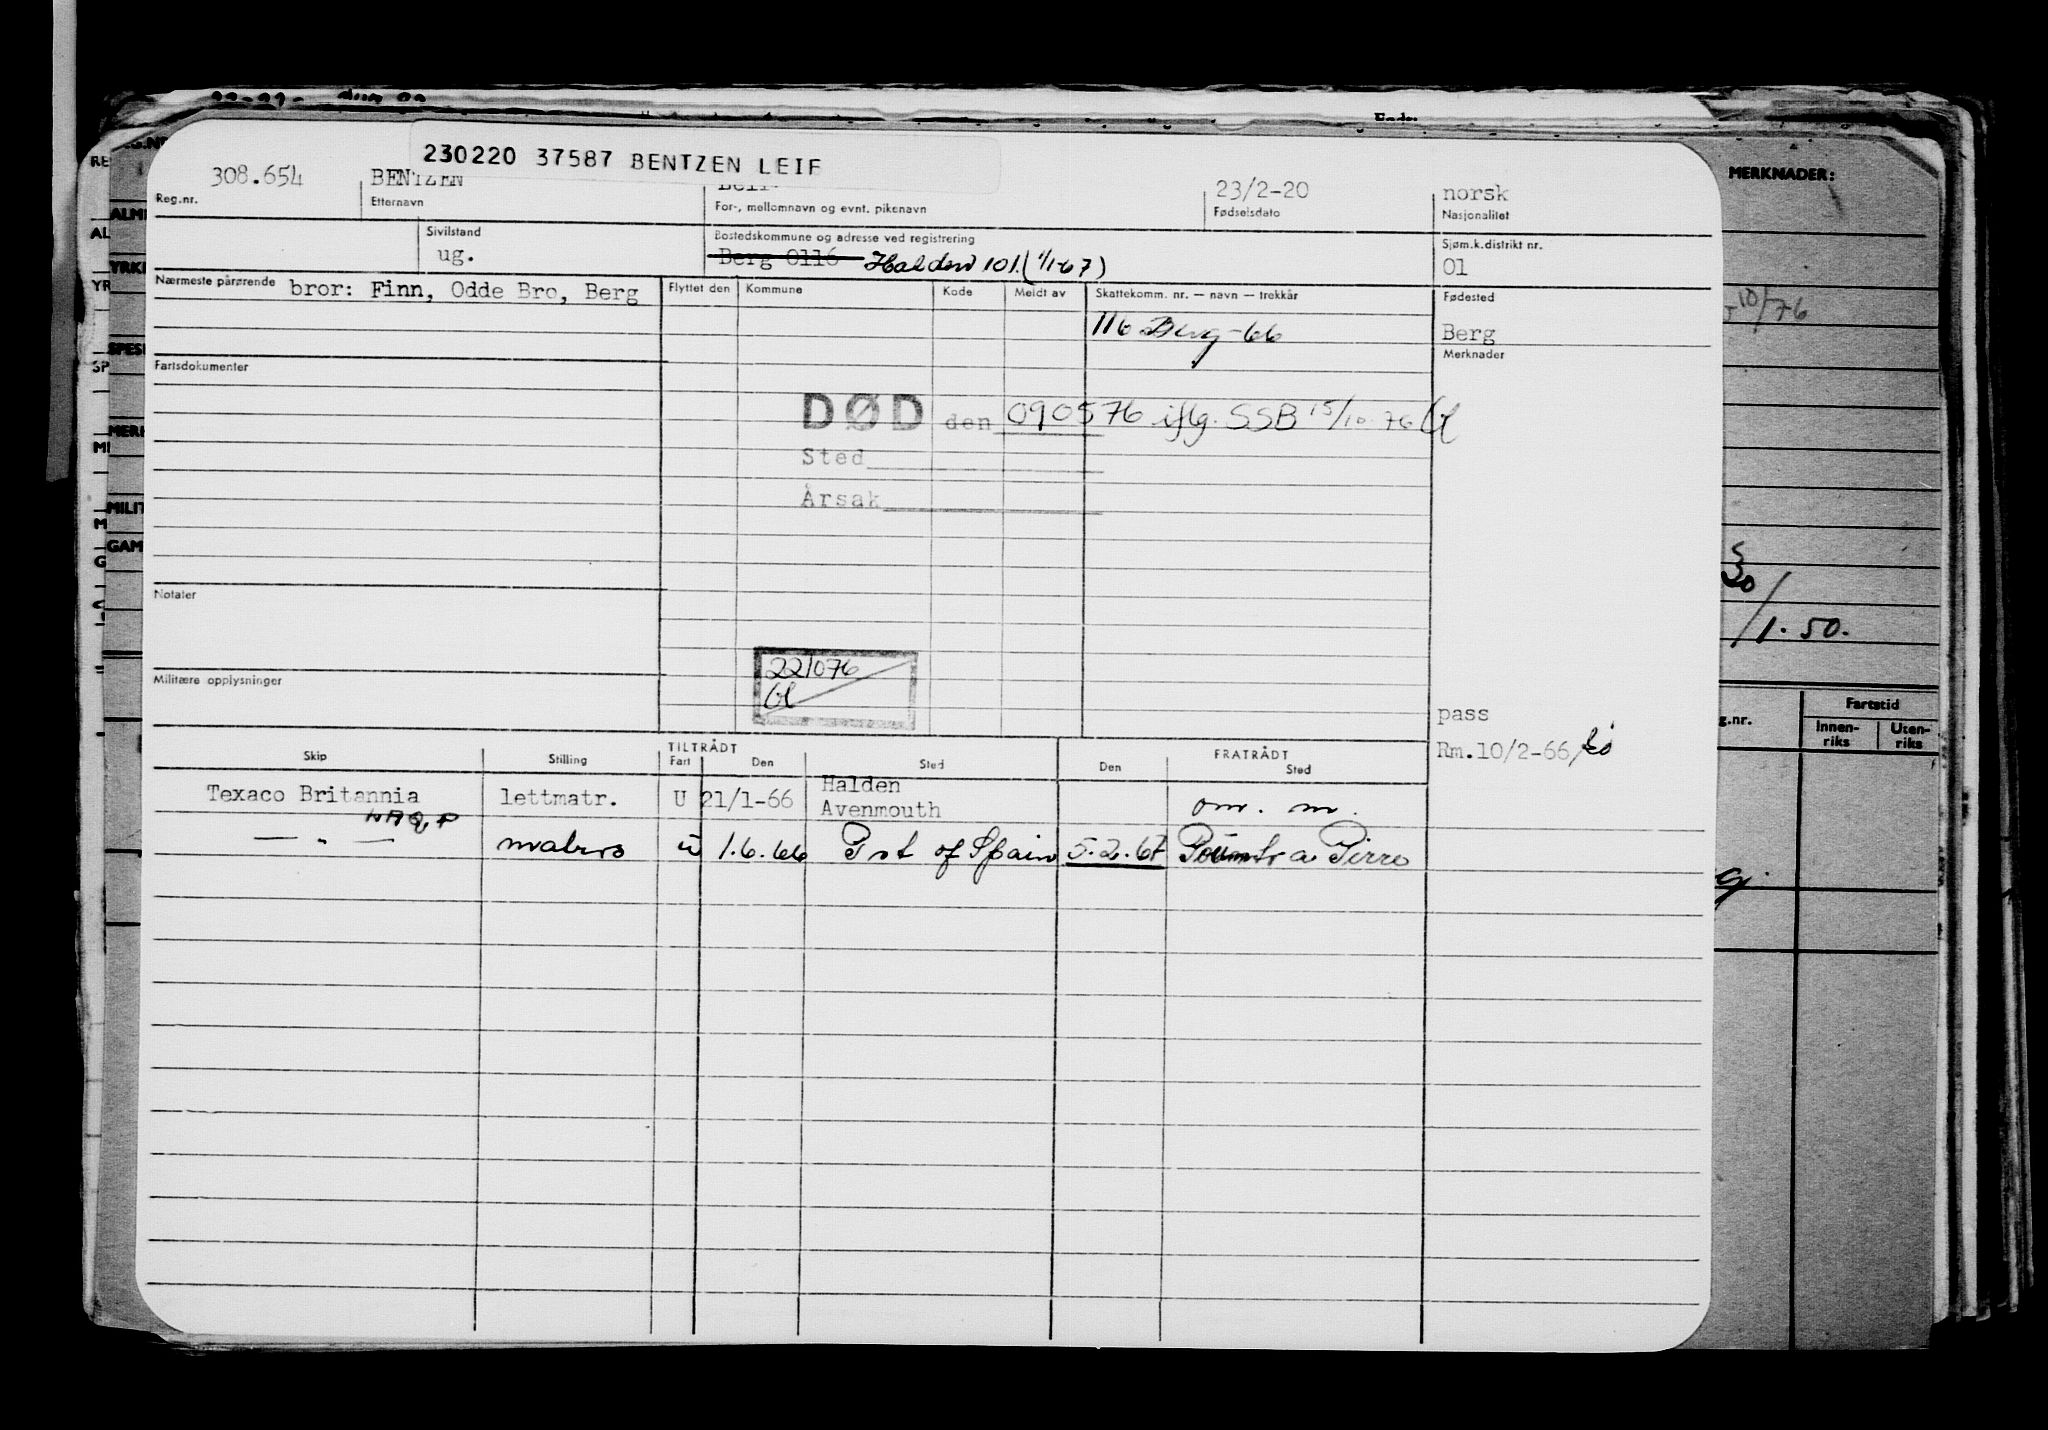 230220 37587 BENTZEN LEIF
308.654 BENTZEN 23/2-20 norsk
Reg.nr. Etternavn For-, mellomnavn og evnt. pikenavn Fødselsdato Nasjonalitet
MERKNADER:
Sivilstand Bostedskommune og adresse ved registrering Sjøm.k.distrikt nr.
ug. Berg 0116 Halden 101. (1/1-67) 01
Nærmeste pårørende bror: Finn, Odde Bro, Berg Flyttet den Kommune Kode Meldt av Skattekomm. nr. — navn — trekkår Fødested
116 Berg-66 Berg
10/76
Fartsdokumenter Merknader
DØD den 090576 iflg. SSB 15/10-76
Sted
Årsak
Notater
1.50.
22/076
Militære opplysninger
pass
Rm.10/2-66/
g.nr. Fartstid
Innen-riks Uten-riks
Skip Stilling TILTRÅDT FRATRÅDT
Fart Den Sted Den Sted
Texaco Britannia lettmatr. U 21/1-66 Halden
Avenmouth om. m.
LAQP
— " — matros u 1.6.66 Prt of Spain 5.2.67 Pointe a Pirre